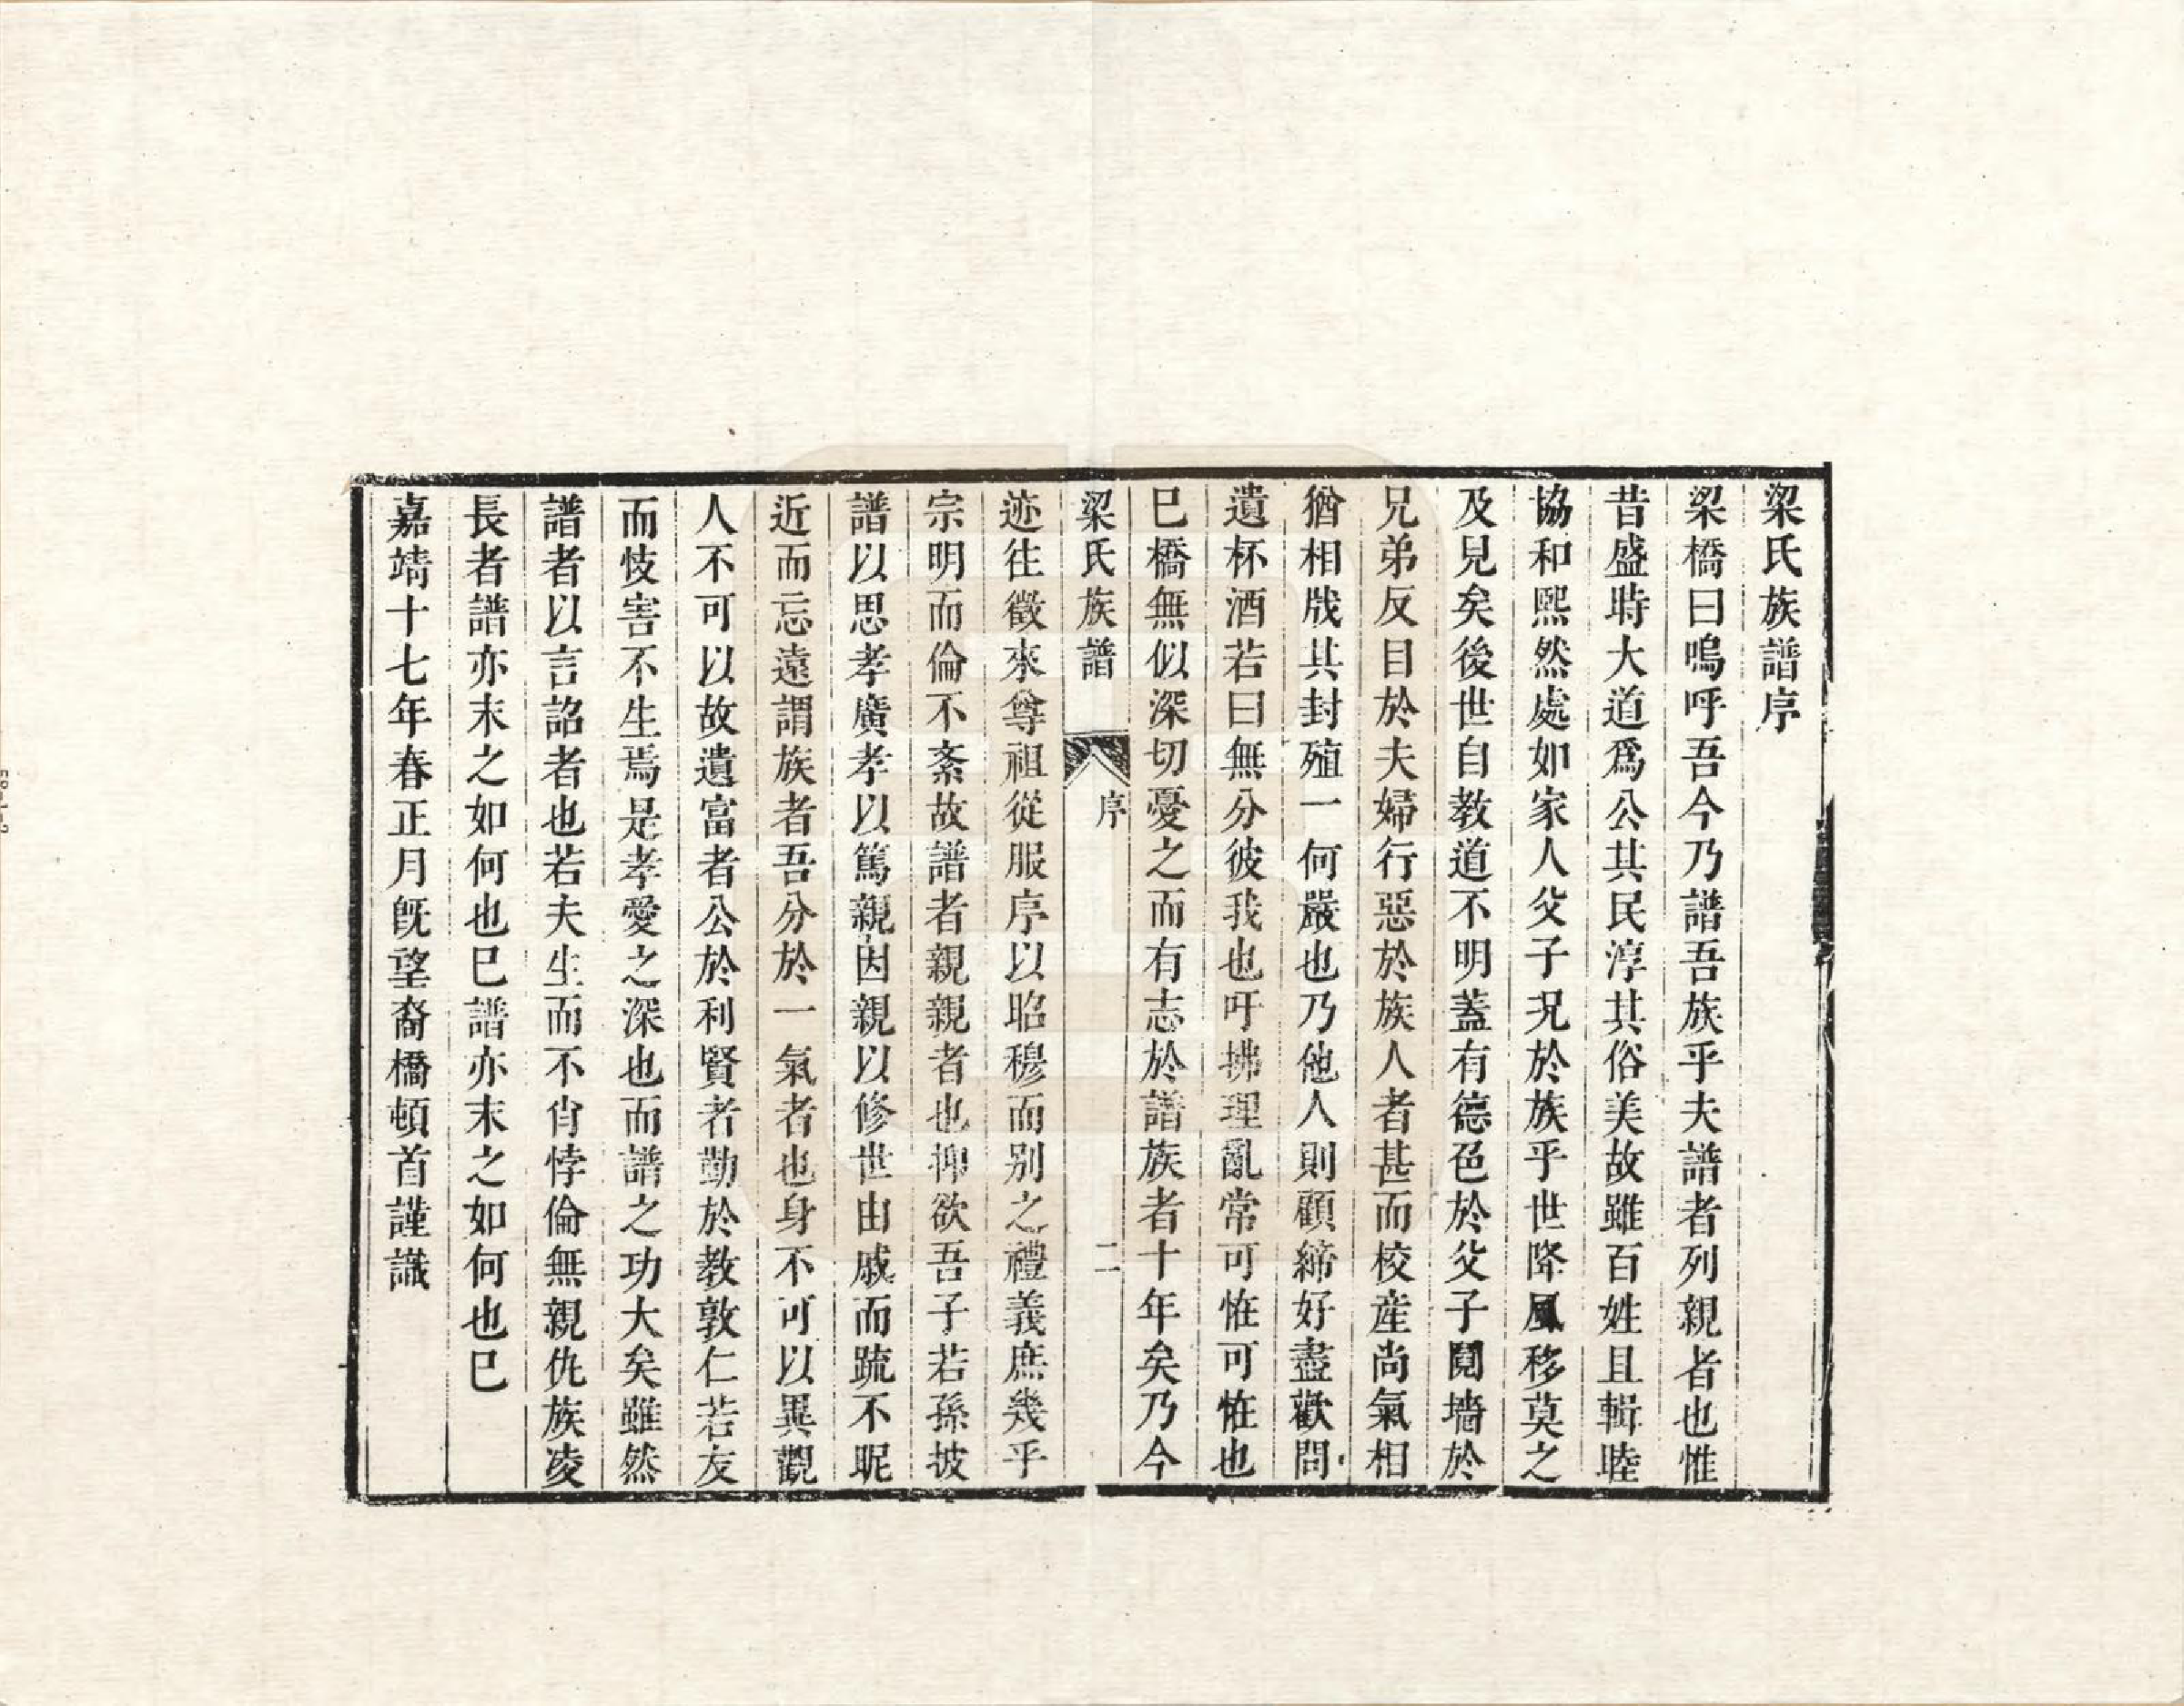 梁氏族譜序
梁橋曰嗚呼吾今乃譜吾族乎夫譜者列親者也惟
昔盛時大道爲公其民淳其俗美故雖百姓且輯睦
協和熙然處如家人父子况於族乎世降風移莫之
及見矣後世自教道不明蓋有德色於父子鬩墻於
兄弟反目於夫婦行惡於族人者甚而校産尚氣相
猶相戕其封殖一何嚴也乃他人則顧締好盡歡問
遺杯酒若曰無分彼我也吁拂理亂常可恠可恠也
巳橋無似深切憂之而有志於譜族者十年矣乃今
梁氏族譜 序 二
迹往徵來尊祖從服序以昭穆而别之禮義庶幾乎
宗明而倫不紊故譜者親親者也抑欲吾子若孫披
譜以思孝廣孝以篤親因親以修世由戚而䟽不昵
近而忘遠謂族者吾分於一氣者也身不可以異觀
人不可以故遺富者公於利賢者勤於教敦仁若友
而忮害不生焉是孝愛之深也而譜之功大矣雖然
譜者以言詔者也若夫生而不肖悖倫無親仇族凌
長者譜亦末之如何也巳譜亦末之如何也巳
嘉靖十七年春正月旣望裔橋頓首謹識